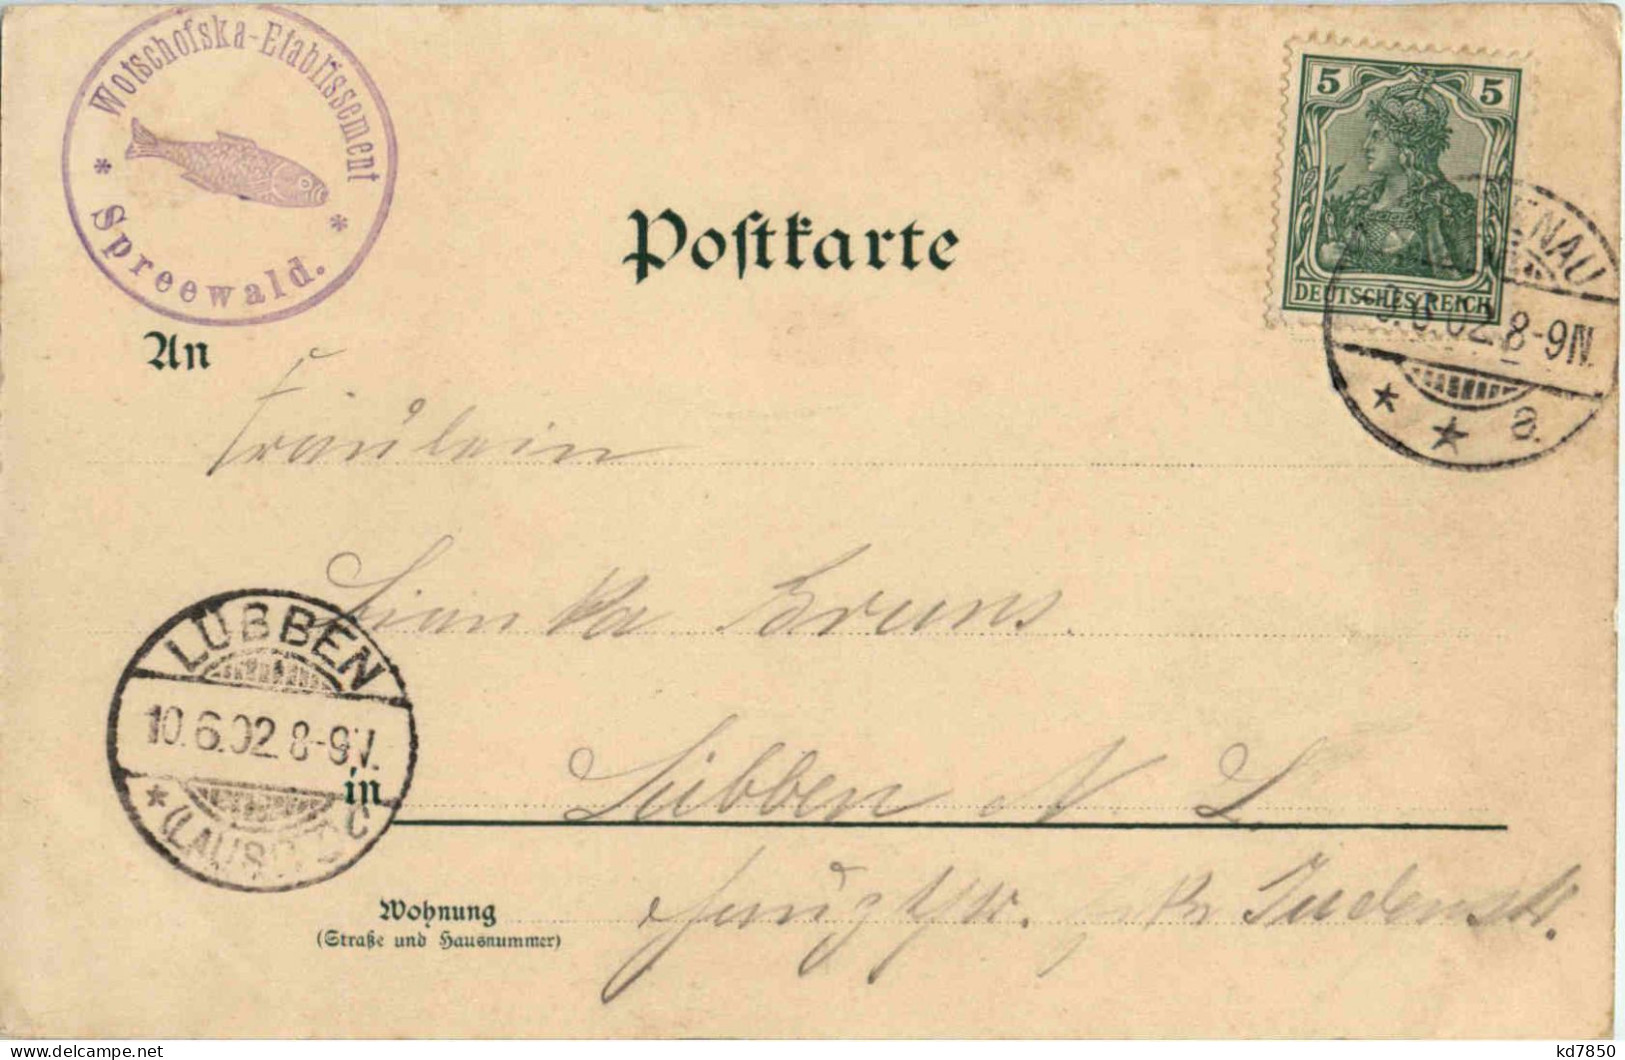 Wotschofska-Etablissement
* Spreewald. *
Postkarte
5 5
DEUTSCHES REICH
ENAU
9.6.02. 8-9N.
* * a.
An
Fräulein
Bruns.
LÜBBEN
10.6.02. 8-9V.
* (LAUSITZ) C
in
Lübben N L.
Wohnung
(Straße und Hausnummer)
Hauptstr. Judenstr.
delcampe.net
kd7850